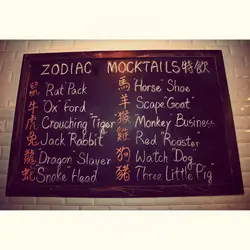 ZODIAC MOCKTAILS特飲
鼠 "Rat" Pack
牛 "Ox" Ford
虎 Crouching "Tiger"
兔 Jack "Rabbit"
龍 "Dragon" Slayer
蛇 "Snake" Head
馬 "Horse" Shoe
羊 Scape "Goat"
猴 "Monkey" Business
雞 Red "Rooster"
狗 Watch "Dog"
豬 Three Little "Pig"